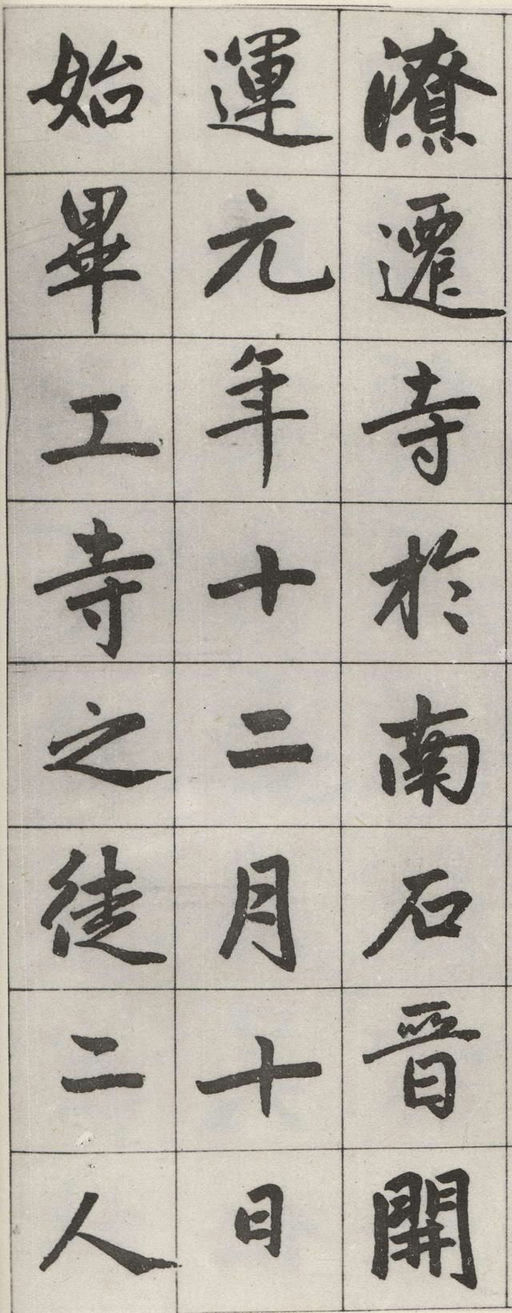 潦遷寺於南石晋開
運元年十二月十日
始畢工寺之徒二人